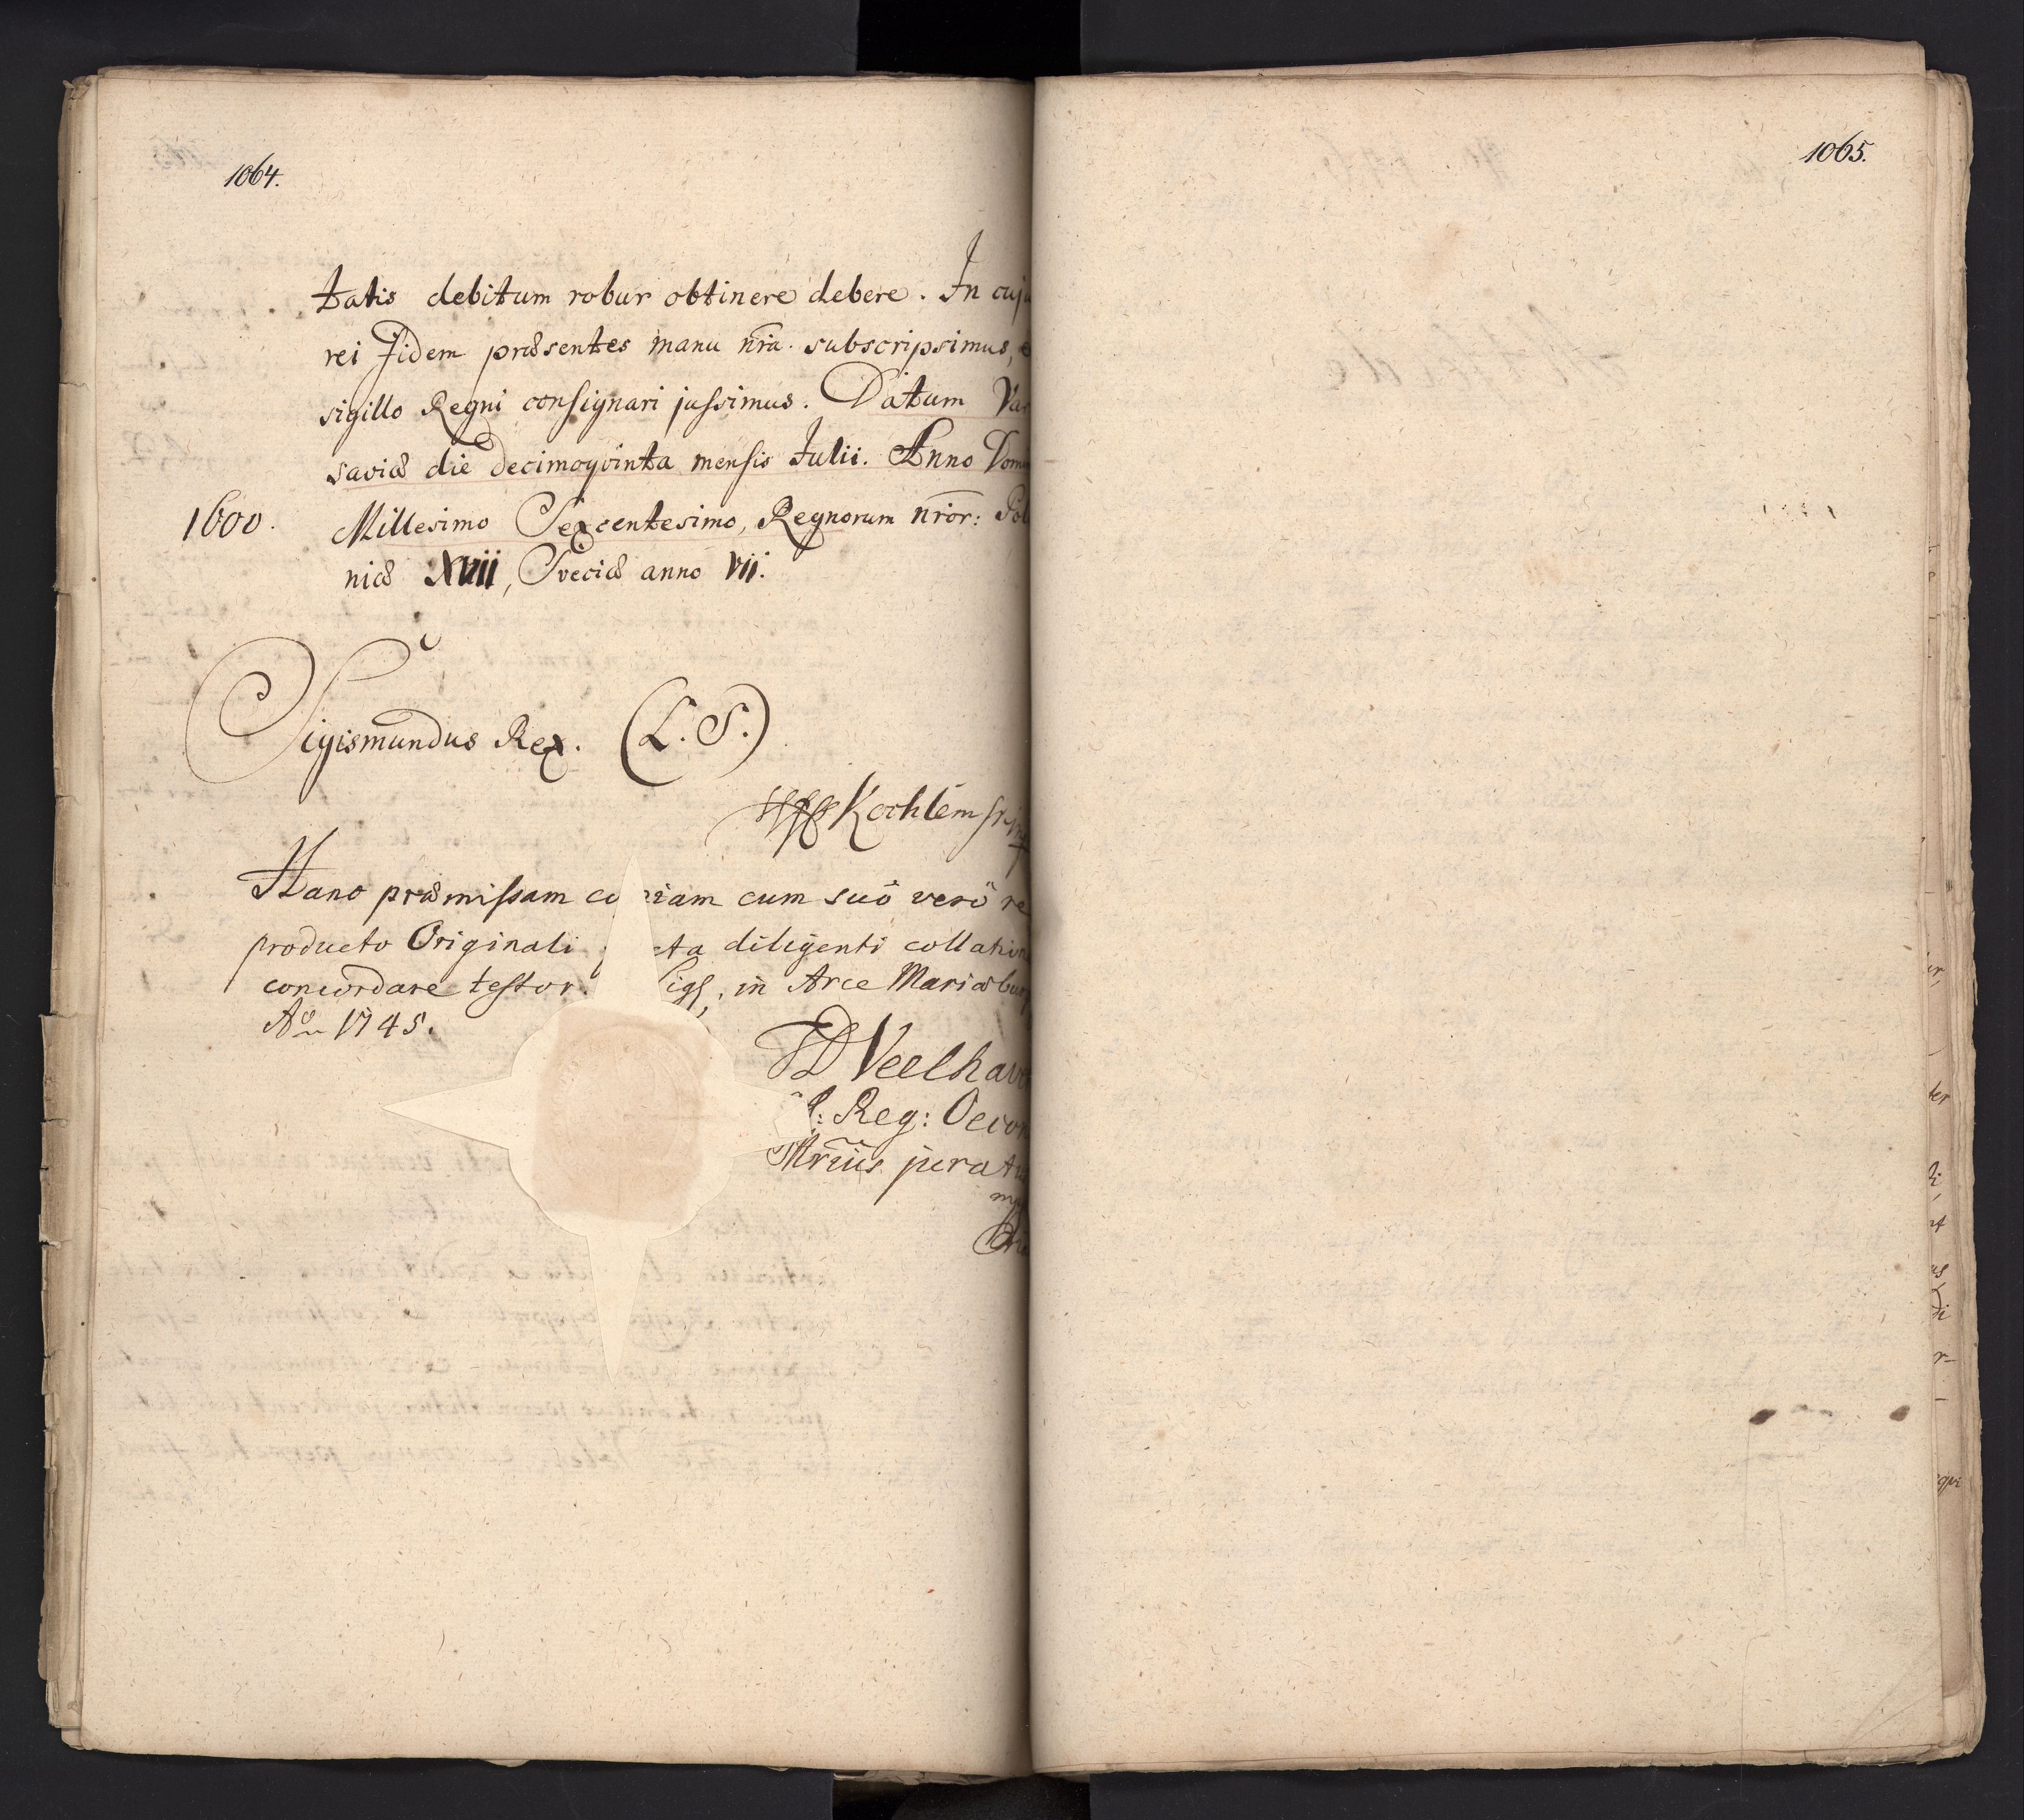 1064.
tatis debitum robur obtinere debere. In cuju
rei fidem præsentes manu nrã. subscripsimus, e
sigillo Regni consignari jussimus. Datum Var
saviæ die decimoqvinta mensis Julii. Anno Dom
1600. Millesimo Sexcentesimo, Regnorum nror: Pol
niæ XVII, Sveciæ anno VII.
Sigismundus Rex. (L. S.)
Kochlem
Hanc præmissam copiam cum suô verô re
producto Originali cta diligenti collation
concordare testor. Sigs, in Arce Mariæburg
Aõ 1745.
Veelhav
S: Reg: Oecon
Mriûs jurat
1065.